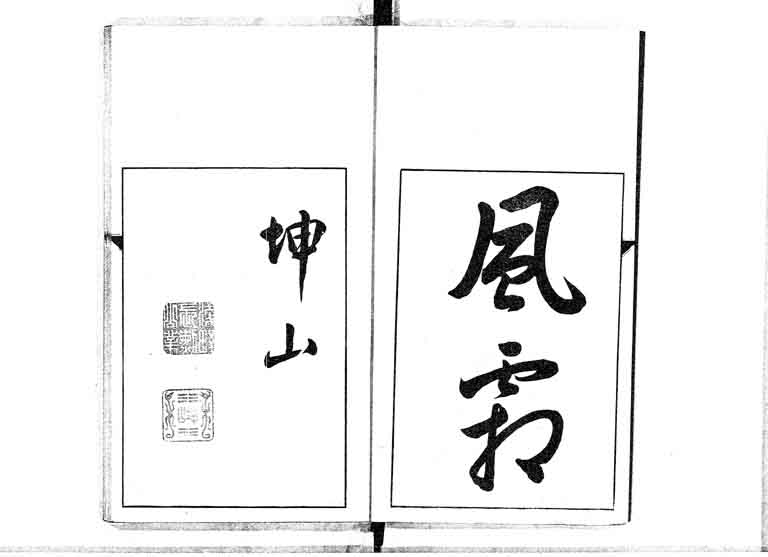 風霜
坤山